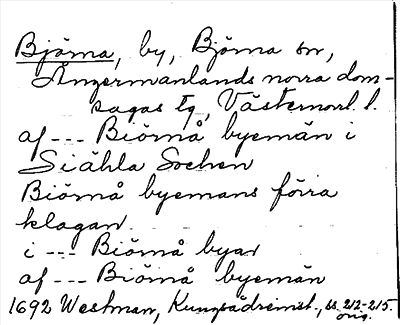 Björna, by, Björna sn,
Ångermanlands norra dom-
sagas tg, Västernorl. l.
af --- Biörnå byemän i
Siähla Sochen
Biörnå byemans förra
klagan
i --- Biörnå byar
af --- Biörnå byemän
1692 Westman, Kungsådremål., bl. 212-215.
orig.